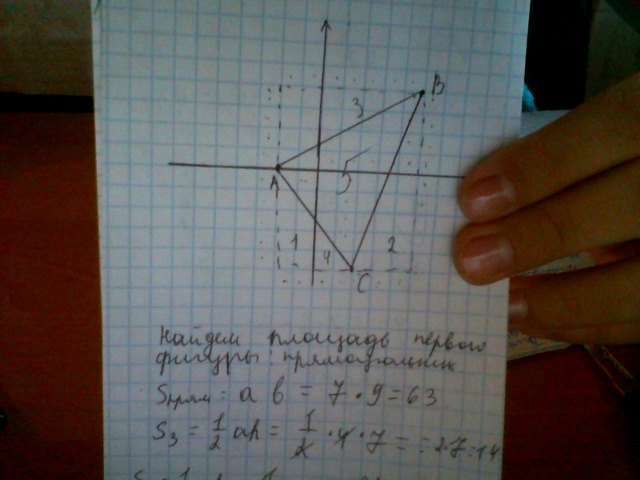 B
3
5
A
1
4
2
C
Найдем площадь первого
фигуры: прямоугольник
Sпрям = a b = 7 · 9 = 63
S₃ = 1/2 ah = 1/2 · 4 · 7 = = 2·7=14